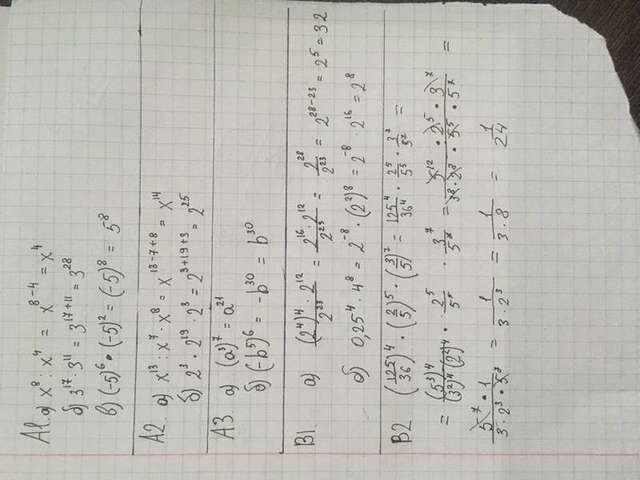 A1. а) x⁸ : x⁴ = x⁸⁻⁴ = x⁴
б) 3¹⁷ · 3¹¹ = 3¹⁷⁺¹¹ = 3²⁸
в) (-5)⁶ · (-5)² = (-5)⁸ = 5⁸
A2. а) x¹³ : x⁷ · x⁸ = x¹³⁻⁷⁺⁸ = x¹⁴
б) 2³ · 2¹⁹ : 2³ = 2³⁺¹⁹⁺³ = 2²⁵
A3 а) (a³)⁷ = a²¹
б) (-b⁵)⁶ = -b³⁰ = b³⁰
B1 а) (2⁴)⁴ · 2¹² / 2²³ = 2¹⁶ · 2¹² / 2²³ = 2²⁸ / 2²³ = 2²⁸⁻²³ = 2⁵ = 32
б) 0,25⁴ · 4⁸ = 2⁻⁸ · (2²)⁸ = 2⁻⁸ · 2¹⁶ = 2⁸
B2 (125/36)⁴ · (2/5)⁵ · (3/5)⁷ = 125⁴/36⁴ · 2⁵/5⁵ · 3⁷/5⁷ =
= (5³)⁴/(3²)⁴(2²)⁴ · 2⁵/5⁵ · 3⁷/5⁷ = 5¹² · 2⁵ · 3⁷ / 3⁸ · 2⁸ · 5⁵ · 5⁷ =
5⁷ · 1 / 3 · 2³ · 5⁷ = 1 / 3 · 2³ = 1 / 3 · 8 = 1/24